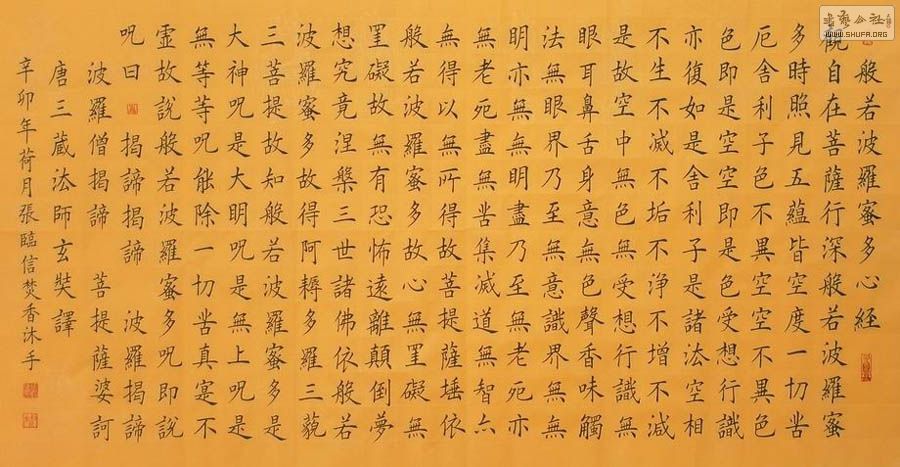 书艺公社
WWW.SHUFA.ORG
般若波羅蜜多心經
觀自在菩薩行深般若波羅蜜
多時照見五蘊皆空度一切苦
厄舍利子色不異空空不異色
色即是空空即是色受想行識
亦復如是舍利子是諸法空相
不生不滅不垢不淨不增不減
是故空中無色無受想行識無
眼耳鼻舌身意無色聲香味觸
法無眼界乃至無意識界無無
明亦無無明盡乃至無老死亦
無老死盡無苦集滅道無智亦
無得以無所得故菩提薩埵依
般若波羅蜜多故心無罣礙無
罣礙故無有恐怖遠離顛倒夢
想究竟涅槃三世諸佛依般若
波羅蜜多故得阿耨多羅三藐
三菩提故知般若波羅蜜多是
大神呪是大明呪是無上呪是
無等等呪能除一切苦真實不
虛故說般若波羅蜜多呪即說
呪曰 揭諦揭諦 波羅揭諦
波羅僧揭諦 菩提薩婆訶
唐三藏法師玄奘譯
辛卯年荷月張臨信焚香沐手